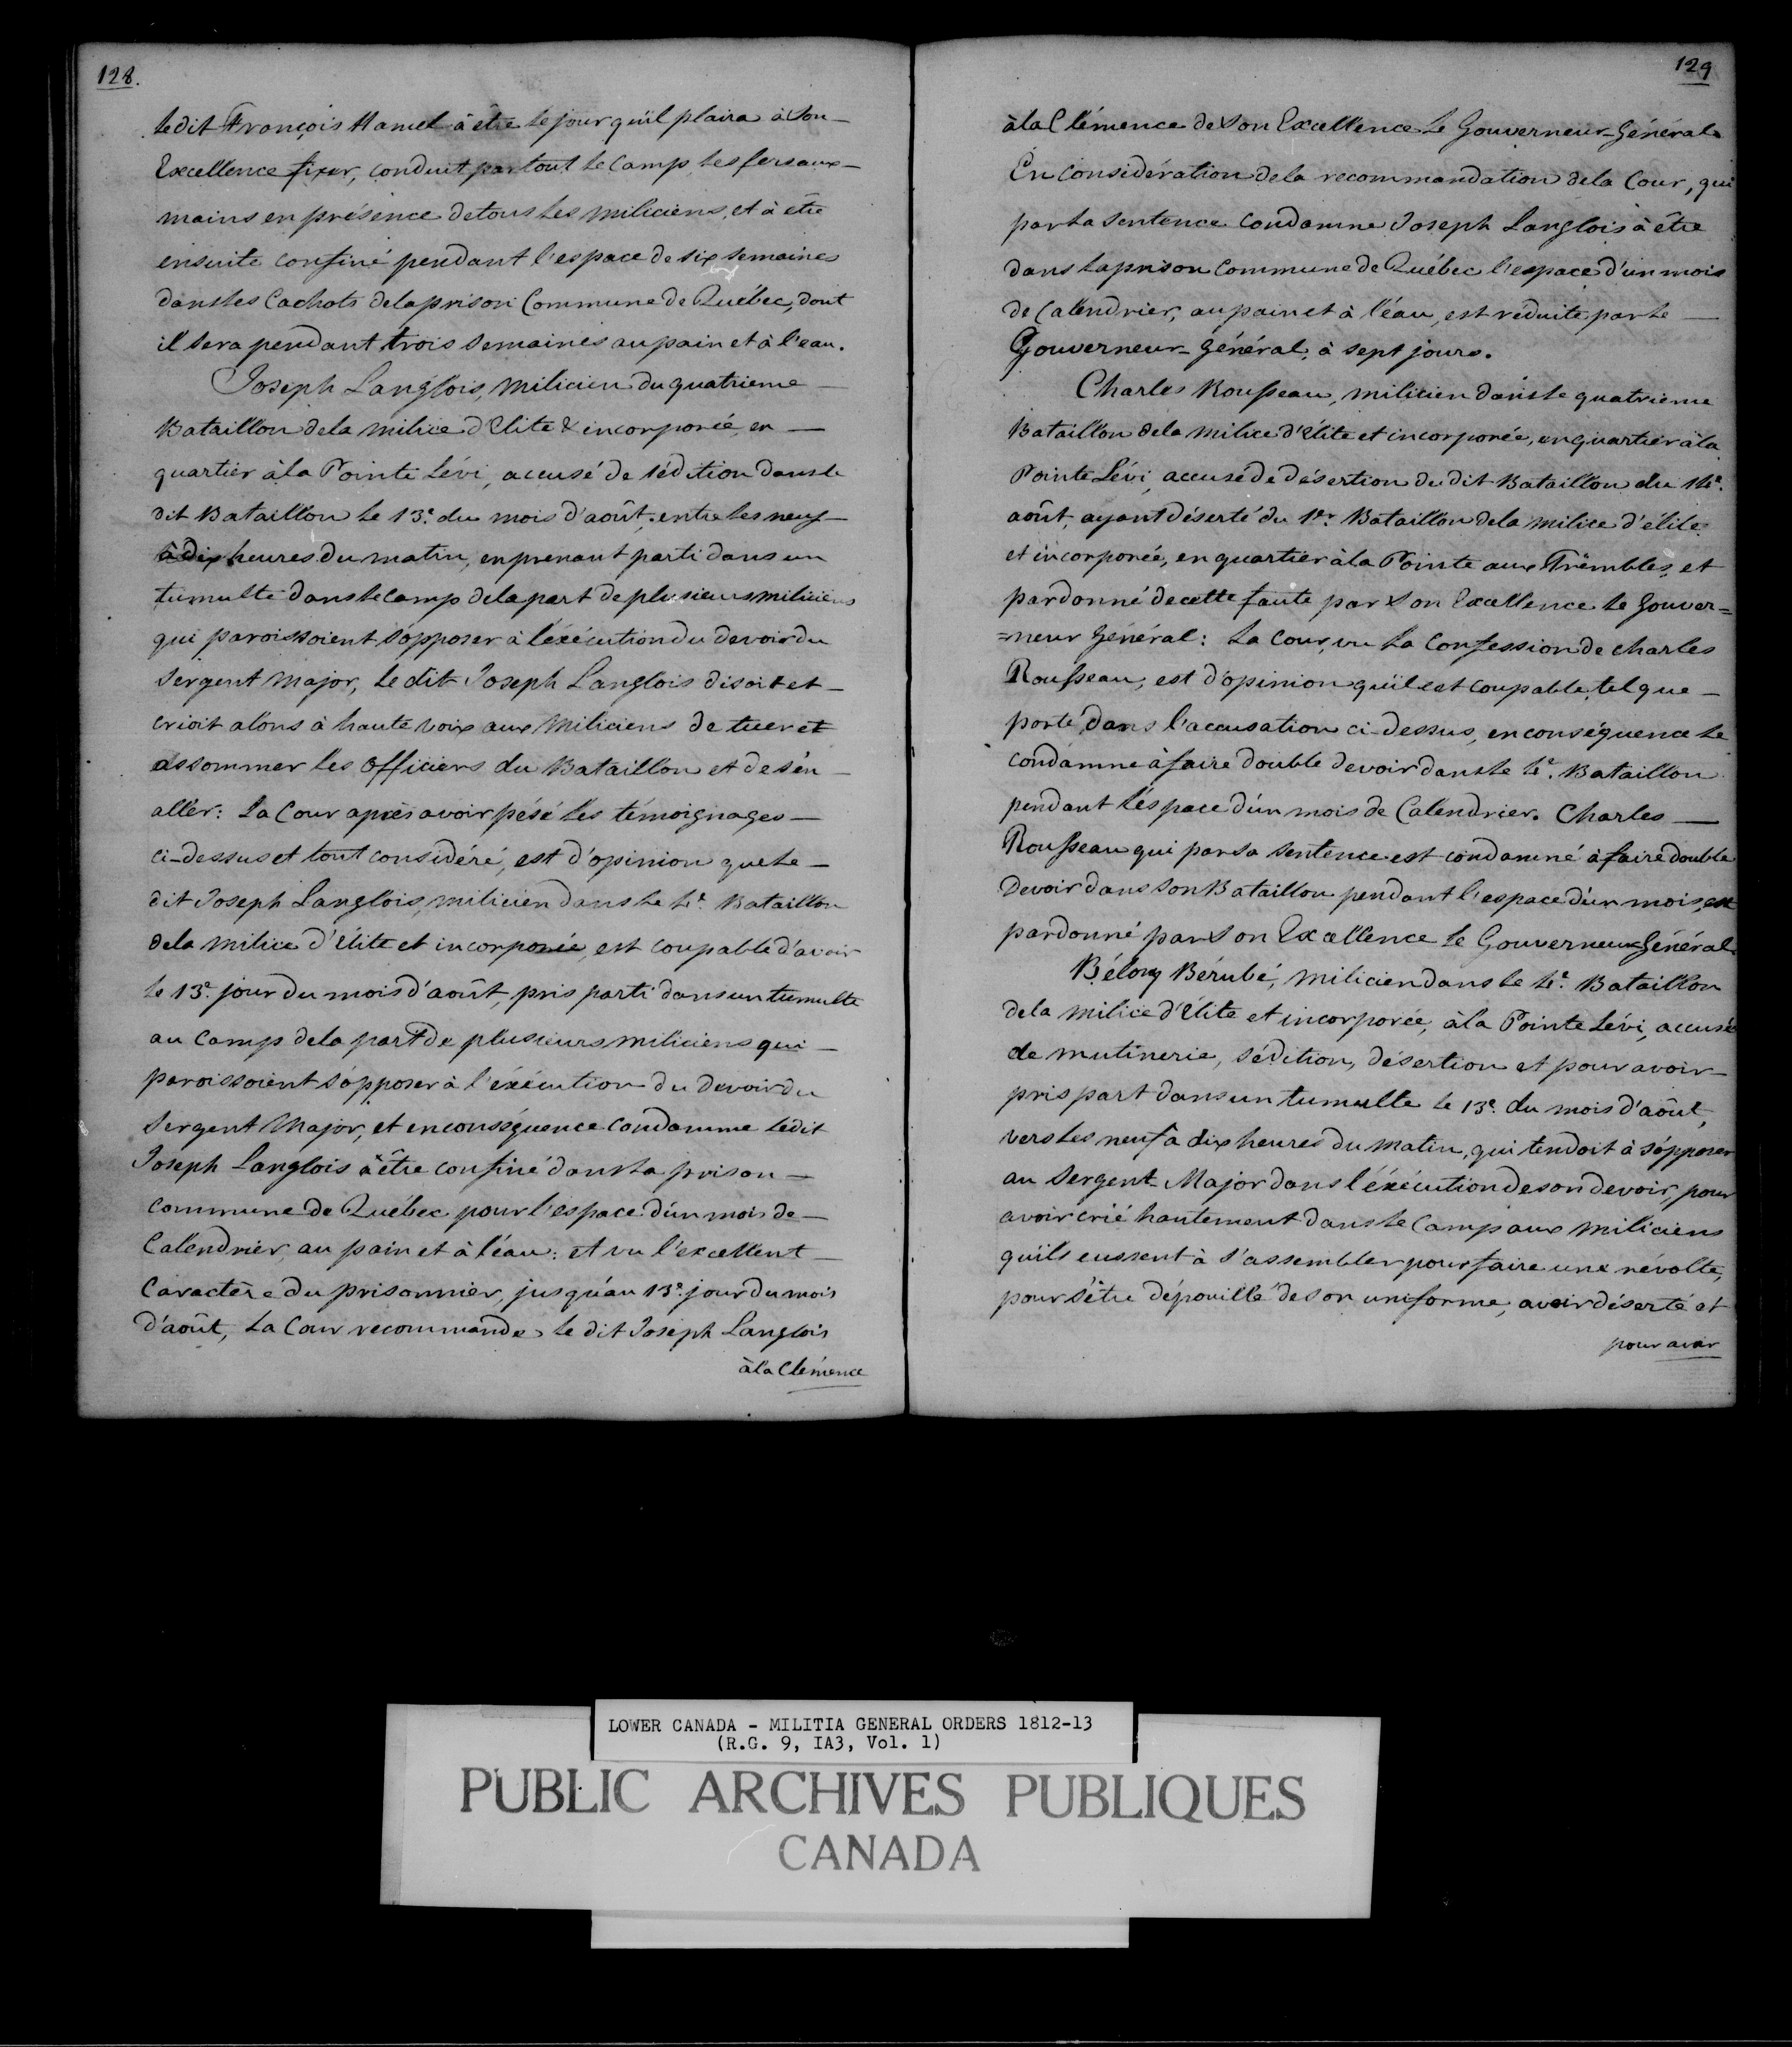 128.
le dit François Hamel à être le jour qu'il plaira à Son
Excellence fixer, conduit partout le Camp les fers aux
mains en présence de tous les miliciens, et à être
ensuite confiné pendant l'espace de six semaines
dans les Cachots de la prison Commune de Québec, dont
il sera pendant trois Semaines au pain et à l'eau.
Joseph Langlois, milicien du quatrieme
Bataillon de la milice d'Elite & incorporée, en
quartier à la Pointe Lévi, accusé de sédition dans le
dit Bataillon le 13e. du mois d'août, entre les neuf
à dix heures du matin, en prenant parti dans un
tumulte dans le camp de la part de plusieurs miliciens
qui paroissoient s'opposer à l'éxécution du devoir du
Sergent Major, le dit Joseph Langlois disoit et
crioit alors à haute voix aux Miliciens de tuer et
assommer les Officiers du Bataillon et de s'en
aller: La Cour après avoir pésé les témoignages
ci-dessus et tout considéré, est d'opinion que le
dit Joseph Langlois, milicien dans le 4e. Bataillon
de la milice d'Elite et incorporée, est coupable d'avoir
le 13e. jour du mois d'août, pris parti dans un tumulte
au Camp de la part de plusieurs miliciens qui
paroissoient s'opposer à l'éxécution du devoir du
Sergent Major, et en conséquence condamne le dit
Joseph Langlois à être confiné dans la prison
commune de Québec pour l'espace d'un mois de
Calendrier, au pain et à l'eau: et vu l'excellent
Caractère du prisonnier, jusqu'au 13e. jour du mois
d'août, la Cour recommande le dit Joseph Langlois
à la Clémence
129
à la Clémence de Son Excellence le Gouverneur-Général.
En considération de la recommandation de la Cour, qui
par la Sentence condamne Joseph Langlois à être
dans la prison Commune de Québec l'espace d'un mois
de Calendrier, au pain et à l'éau, est réduite par le
Gouverneur-Général, à sept jours.
Charles Rousseau, milicien dans le quatrieme
Bataillon de la milice d'élite et incorporée, en quartier à la
Pointe Lévi, accusé de désertion du dit Bataillon du 14e.
août, ayant déserté du 1er. Bataillon de la milice d'élite
et incorporée, en quartier à la Pointe aux Trembles, et
pardonné de cette faute par Son Excellence le Gouver=
=neur Général: La Cour, vu la Confession de Charles
Rousseau, est d'opinion qu'il est coupable, tel que
porté dans l'accusation ci-dessus, en conséquence le
condamne à faire double devoir dans le 4e. Bataillon
pendant l'éspace d'un mois de Calendrier. Charles
Rousseau qui par sa Sentence est condamné à faire double
Devoir dans son Bataillon pendant l'espace d'un mois, est
pardonné par Son Excellence le Gouverneur Général.
Bélony Bérubé, milicien dans le 4e. Bataillon
de la milice d'Elite et incorporée, à la Pointe Lévi, accusé
de mutinerie, sédition, désertion et pour avoir
pris part dans un tumulte le 13e. du mois d'août,
vers les neuf à dix heures du matin, qui tendoit à s'opposer
au Sergent-Major dans l'éxécution de son devoir, pour
avoir crié hautement dans le Camp aux miliciens
qu'ils eussent à s'assembler pour faire une révolte,
pour s'être dépouillé de son uniforme, avoir déserté et
pour avoir
LOWER CANADA - MILITIA GENERAL ORDERS 1812-13
(R.G. 9, IA3, Vol. 1)
PUBLIC ARCHIVES PUBLIQUES
CANADA